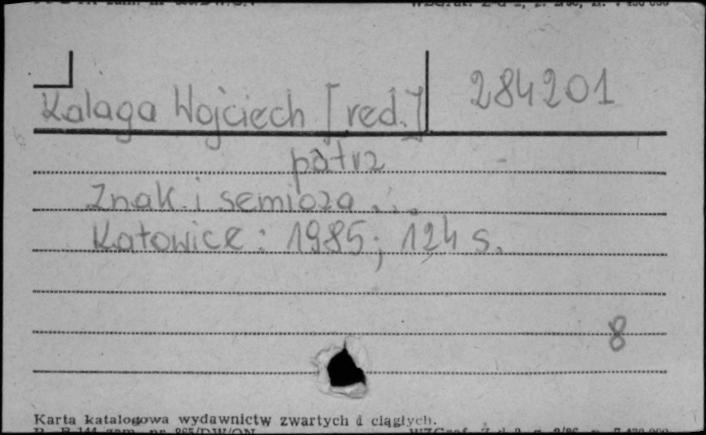 Kalaga Wojciech [red.] 284201
patrz
Znak i semioza...
Katowice: 1985; 124 s.
8
Karta katalogowa wydawnictw zwartych i ciągłych.